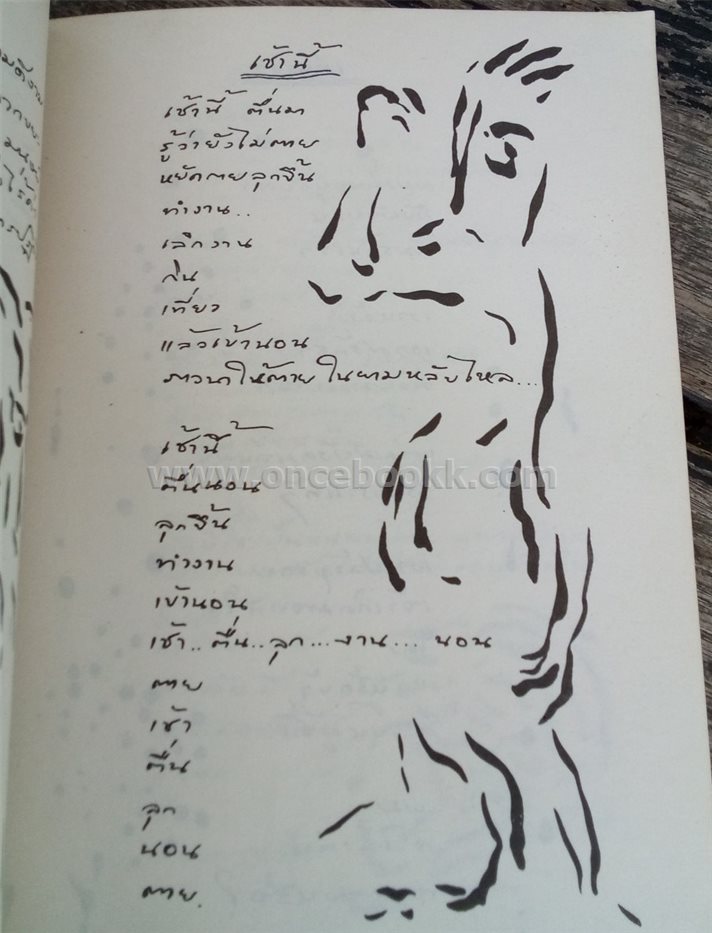 เช้านี้
เช้านี้ ตื่นมา
รู้ว่ายังไม่ตาย
หยัดกายลุกขึ้น
ทำงาน..
เลิกงาน
กิน
เที่ยว
แล้วเข้านอน
ภาวนาให้ตายในยามหลับไหล...
เช้านี้
ตื่นนอน
ลุกขึ้น
ทำงาน
เข้านอน
เช้า..ตื่น..ลุก...งาน...นอน
ตาย
เช้า
ตื่น
ลุก
นอน
ตาย.
www.oncebookk.com